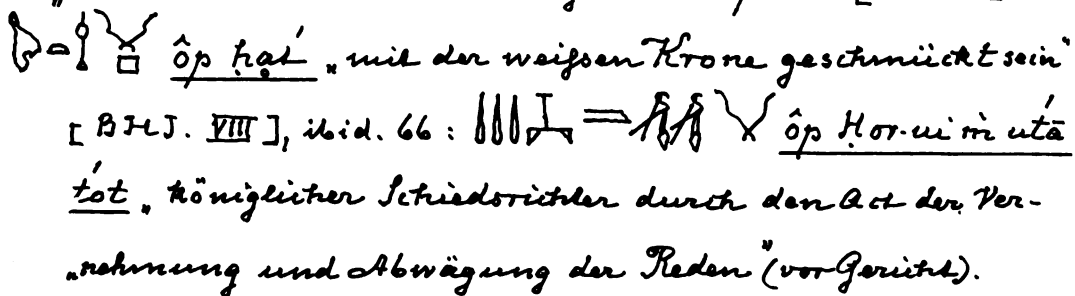 ôp ḥaṭ́ „mit der weißen Krone geschmückt sein"
[BHI. VIII], ibid. 66: ôp Ḥor-ui ṁ utā́
t́ot „königlicher Schiedsrichter durch den Act der Ver-
„nehmung und Abwägung der Reden" (vor Gericht).